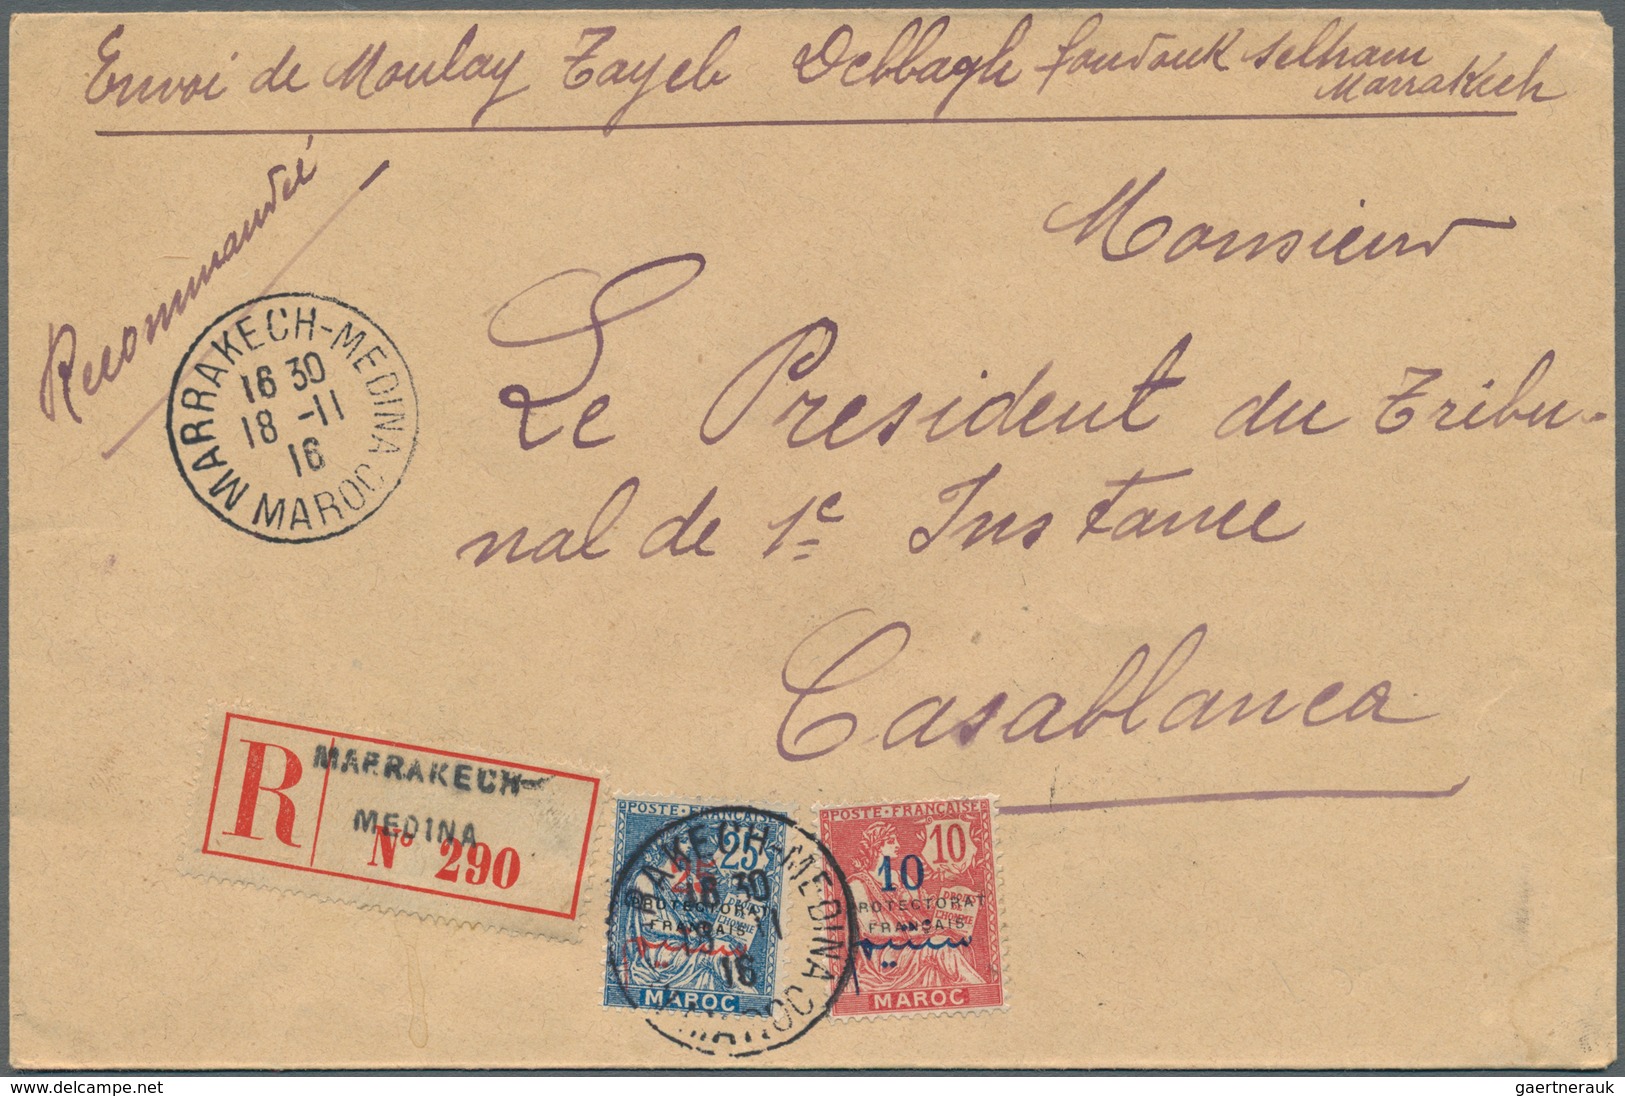 Envoi de Moulay Tayeb Debbagh fondouk Selham
Marrakech
Recommandé
Monsieur
Le President du Tribu-
nal de 1e Instance
Casablanca
MARRAKECH-MEDINA
16 30
18 -11
16
MAROC
R
MARRAKECH-
MEDINA
N° 290
POSTE · FRANÇAISE
25
25
PROTECTORAT
FRANÇAIS
MAROC
MARRAKECH-MEDINA
16 30
18 -11
16
MAROC
POSTE · FRANÇAISE
10
10
DROITS
DE
L'HOMME
PROTECTORAT
FRANÇAIS
MAROC
delcampe.net
gaertnerauk